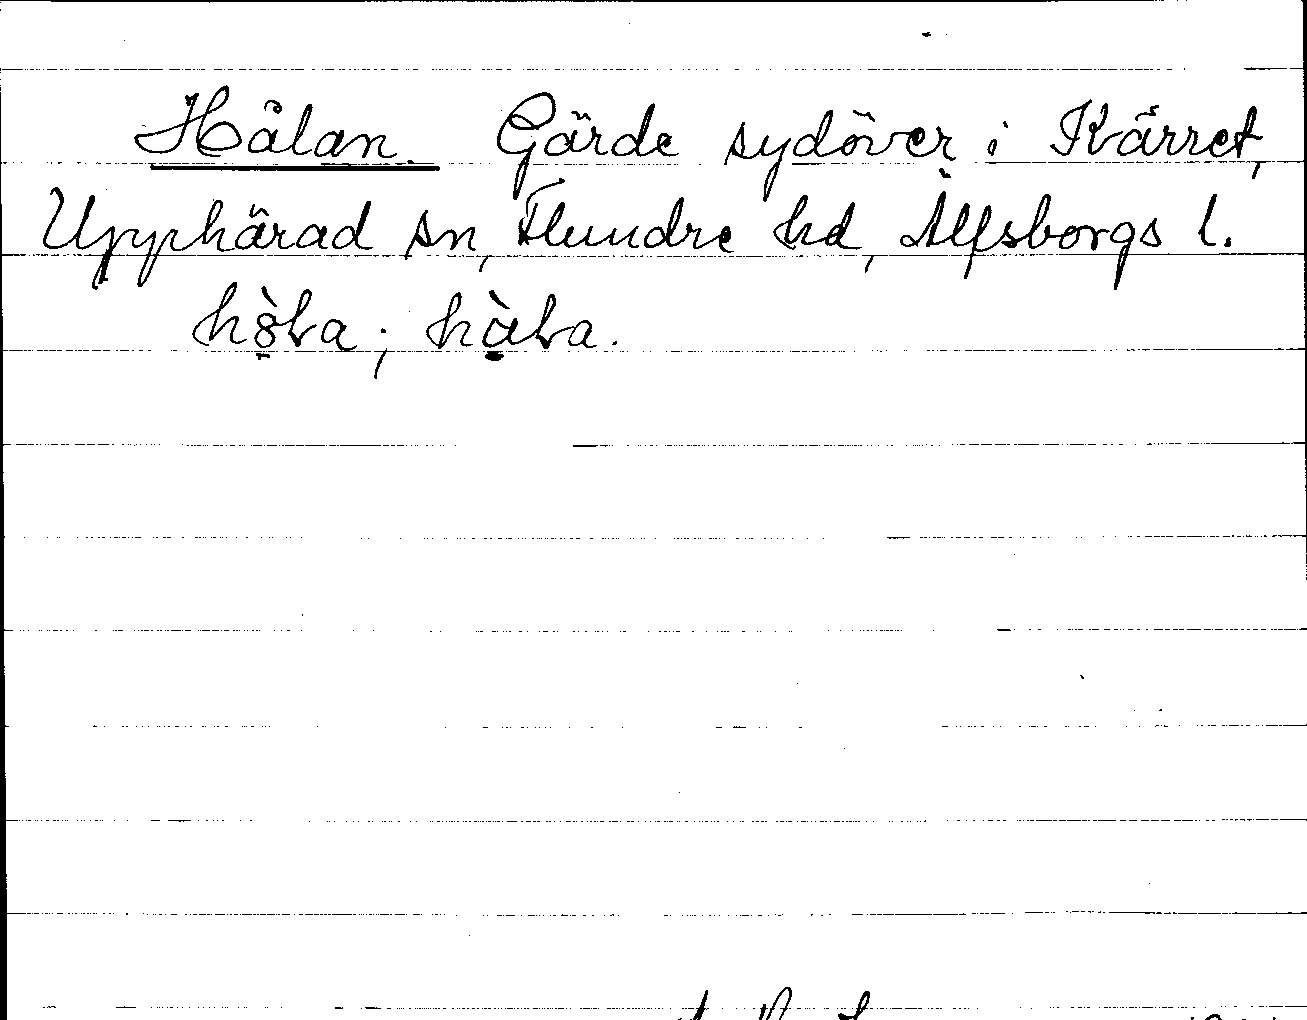 Hålan. Gärde sydöver i Kärret,
Upphärad sn, Flundre hd, Älfsborgs l.